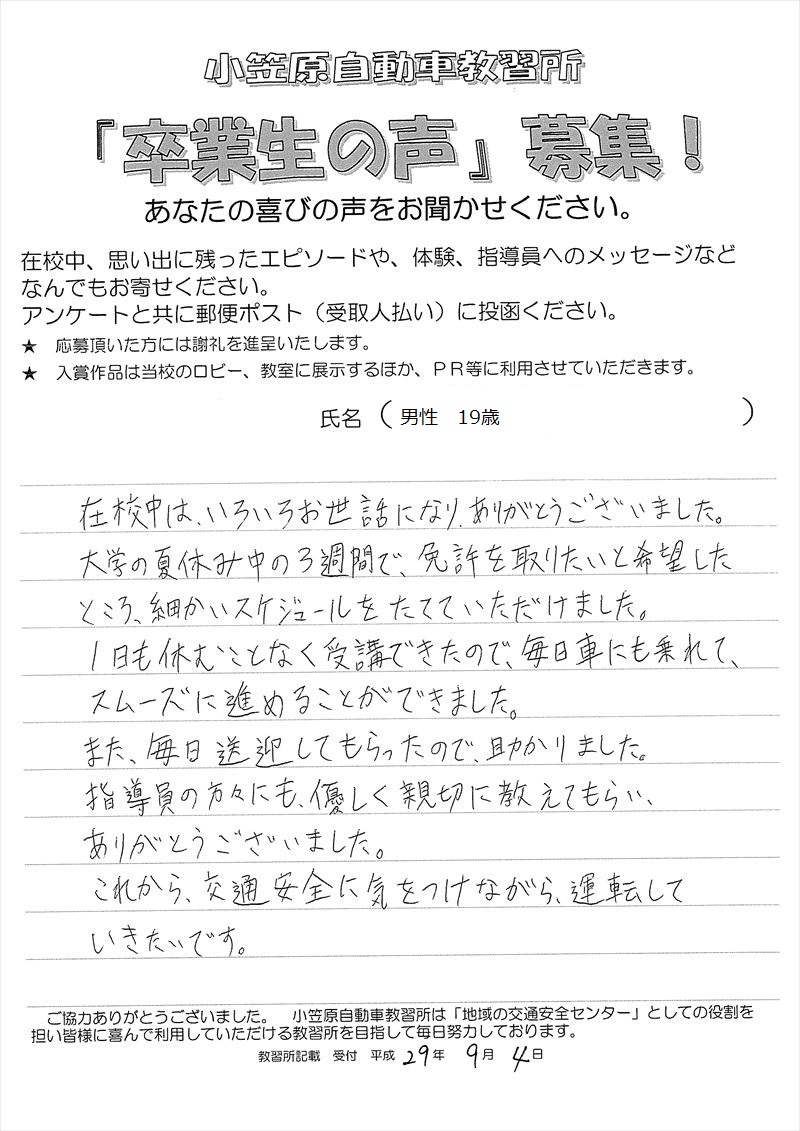 小笠原自動車教習所
『卒業生の声』募集！
あなたの喜びの声をお聞かせください。
在校中、思い出に残ったエピソードや、体験、指導員へのメッセージなど
なんでもお寄せください。
アンケートと共に郵便ポスト（受取人払い）に投函ください。
★　応募頂いた方には謝礼を進呈いたします。
★　入賞作品は当校のロビー、教室に展示するほか、ＰＲ等に利用させていただきます。
氏名（男性　19歳　）
在校中は、いろいろお世話になり、ありがとうございました。
大学の夏休み中の3週間で、免許を取りたいと希望した
ところ、細かいスケジュールをたてていただけました。
1日も休むことなく受講できたので、毎日車にも乗れて、
スムーズに進めることができました。
また、毎日送迎してもらったので、助かりました。
指導員の方々にも、優しく親切に教えてもらい、
ありがとうございました。
これから、交通安全に気をつけながら、運転して
いきたいです。
ご協力ありがとうございました。　小笠原自動車教習所は「地域の交通安全センター」としての役割を
担い皆様に喜んで利用していただける教習所を目指して毎日努力しております。
教習所記載　受付　平成 29年 9月 4日